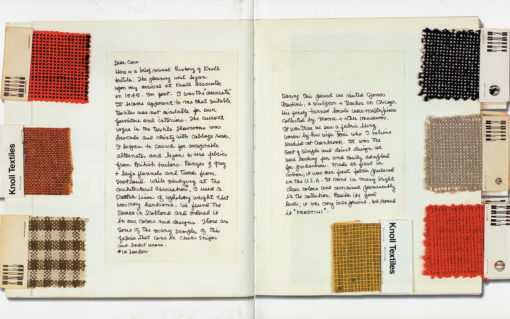 Dear Cara
Here is a brief account history of Knoll
textiles. The planning unit began
upon my arrival at Knoll Associates
in 1943. In fact, I was the
It became apparent to me that suitable
textiles was not available for our
furniture and interiors. The current
vogue in the Textile Showrooms was
brocade and chintz with cabbage roses.
I began to search for acceptable
alternate and began to use fabric
from British tailors. Ranges of grey
+ beige flannels and tweeds from
Scotland. While at the
architectural association, I used a
of upholstery weight that
was very handsome. We found the
source in Scotland and ordered it
in our colors and designs. These are
some of the many samples of this
fabric that come in Checks Stripes
and solid weave.
in London
During this period we visited James
Prestini, a sculptor + teacher in Chicago.
His finely turned bowls were widely
collected by Moma + other museums.
It was there we saw a fabric
woven by his wife Toni who I believe
studied at Cranbrook. It was the
sort of simple and direct design we
was looking for and easily adapted
for production. Made at first in
cotton, it was our first fabric produced
in the U.S.A. It came in many bright
clear colors and remained
in the collection. Besides its good
look, it was very inexpensive. We named
it "PRESTINI"
Knoll Textiles
Knoll Textiles